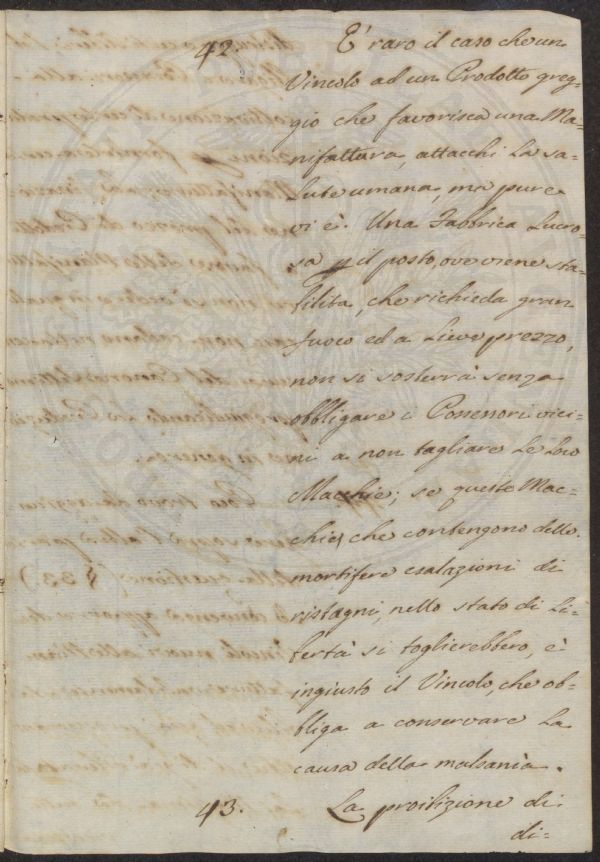 42. E' raro il caso che un
Vincolo ad un Prodotto greg=
gio che favorisca una Ma=
nifattura, attacchi la sa=
lute umana, ma pure
vi è. Una Fabbrica lucro=
sa p il posto, ove viene sta=
bilita, che richieda gran
fuoco ed a lieve prezzo,
non si sosterrà senza
obbligare i Possessori vici=
ni a non tagliare le loro
Macchie; se queste Mac=
chie, che contengono delle
mortifere esalazioni di
ristagni, nello stato di Li=
bertà si toglierebbero, è
ingiusto il Vincolo, che ob=
bliga a conservare la
causa della malsania.
43. La proibizione di
di=